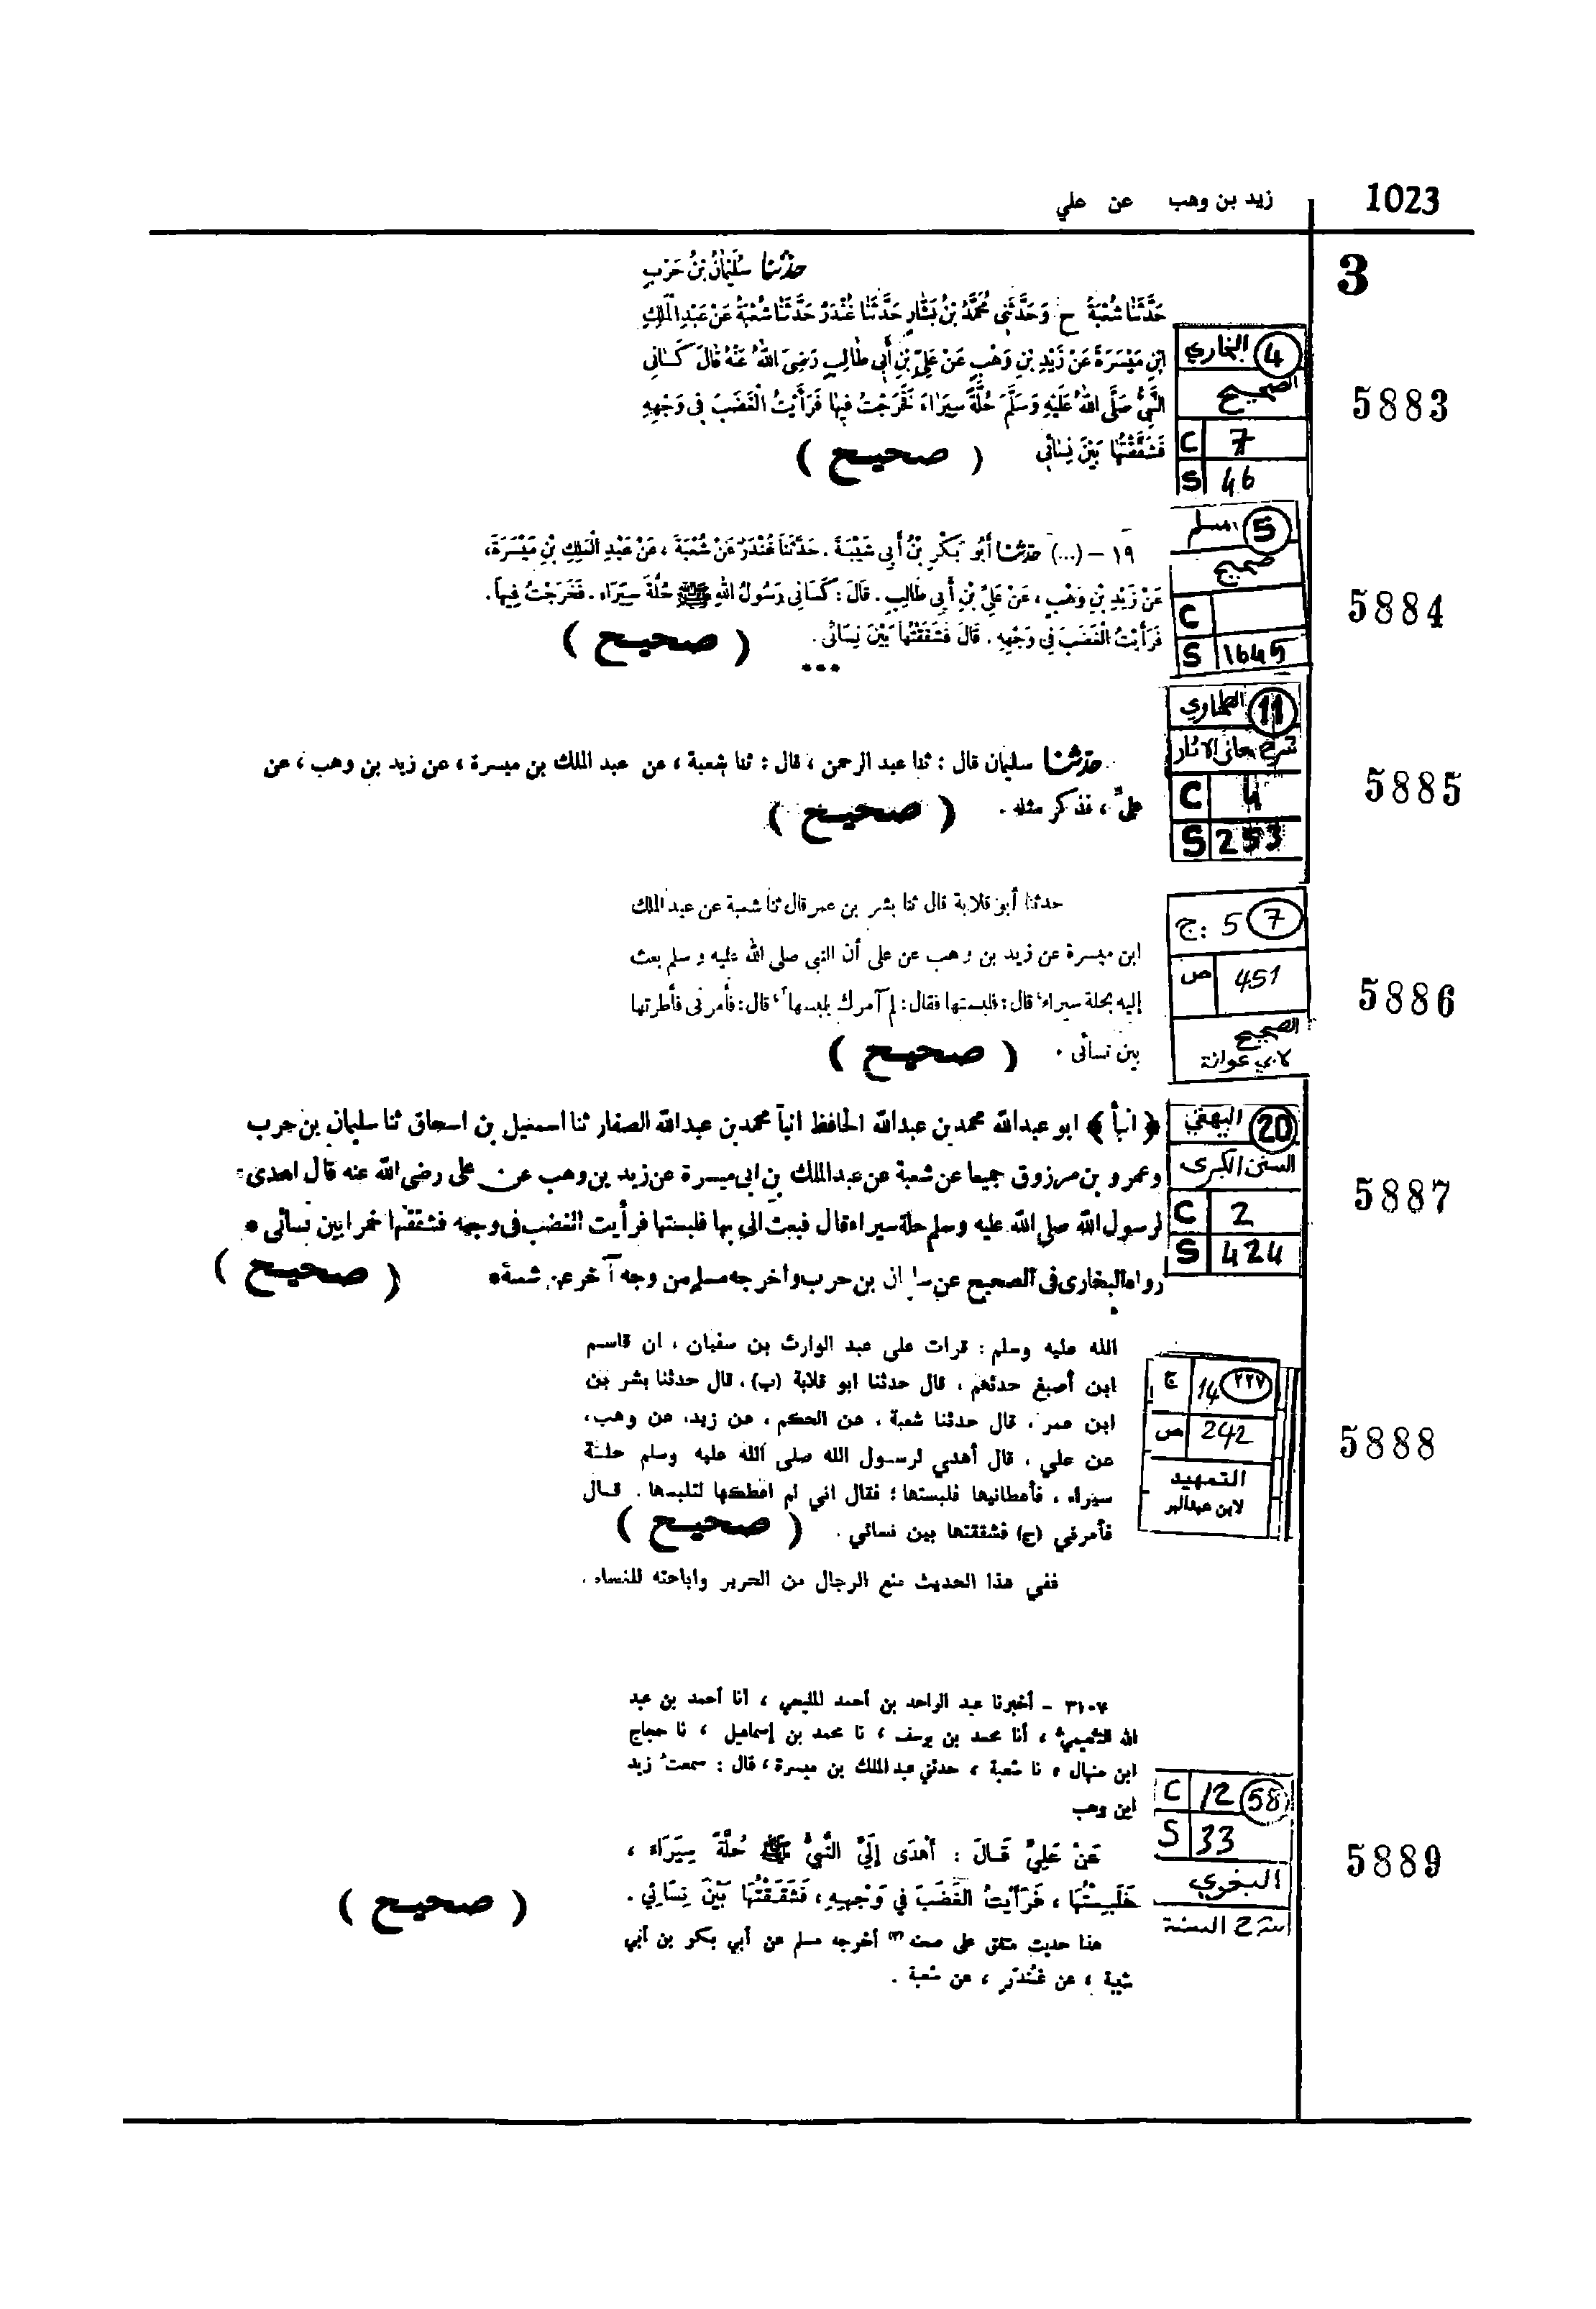 1023
زيد بن وهب عن علي
3
حدثنا سُلَيْمَانُ بْنُ حَرْبٍ
حَدَّثَنَا شُعْبَةُ ح وَحَدَّثَنِي مُحَمَّدُ بْنُ بَشَّارٍ حَدَّثَنَا غُنْدَرٌ حَدَّثَنَا شُعْبَةُ عَنْ عَبْدِ الْمَلِكِ
ابْنِ مَيْسَرَةَ عَنْ زَيْدِ بْنِ وَهْبٍ عَنْ عَلِيِّ بْنِ أَبِى طَالِبٍ رَضِىَ اللهُ عَنْهُ قَالَ كَسَانِى
النَّبِيُّ صَلَّى اللهُ عَلَيْهِ وَسَلَّمَ حُلَّةً سِيَرَاءَ فَخَرَجْتُ فِيهَا فَرَأَيْتُ الْغَضَبَ فِى وَجْهِهِ
فَشَقَّقْتُهَا بَيْنَ نِسَائِى ( صحيح )
4 البخاري
الصحيح
C 7
S 46
5883
١٩ – (...) حدثنا أَبُو بَكْرِ بْنُ أَبِي شَيْبَةَ . حَدَّثَنَا غُنْدَرٌ عَنْ شُعْبَةَ ، عَنْ عَبْدِ الْمَلِكِ بْنِ مَيْسَرَةَ،
عَنْ زَيْدِ بْنِ وَهْبٍ ، عَنْ عَلِيِّ بْنِ أَبِي طَالِبٍ . قَالَ : كَسَانِى رَسُولُ اللهِ ﷺ حُلَّةَ سِيَرَاءَ . فَخَرَجْتُ فِيهاَ .
فَرَأَيْتُ الْغَضَبَ فِي وَجْهِهِ . قَالَ فَشَقَقْتُهَا بَيْنَ نِسَائِي . ( صحيح )
***
5 مسلم
صحيح
C
S 1645
5884
حدثنا سليمان قال : ثنا عبد الرحمن ، قال : ثنا شعبة ، عن عبد الملك بن ميسرة ، عن زيد بن وهب ، عن
عليّ ، فذكر مثله . ( صحيح )
11 الطحاوي
شرح معاني الاثار
C 4
S 253
5885
حدثنا أبو قلابة قال ثنا بشر بن عمر قال ثنا شعبة عن عبد الملك
ابن ميسرة عن زيد بن وهب عن على أن النبى صلى الله عليه و سلم بعث
إليه بحلة سيراء قال : فلبستها فقال : لم آمرك بلبسها قال : فأمرنى فأطرتها
بين نسائى . ( صحيح )
7 5 ج:
ص 451
الصحيح
لابي عوانة
5886
﴿ انبأ ﴾ ابو عبدالله محمد بن عبدالله الحافظ انبأ محمد بن عبدالله الصفار ثنا اسمعيل بن اسحاق ثنا سليمان بن حرب
وعمرو بن مرزوق جميعا عن شعبة عن عبد الملك بن ابى ميسرة عن زيد بن وهب عن على رضى الله عنه قال اهدى
لرسول الله صلى الله عليه وسلم حلة سيراء قال فبعث الى بها فلبستها فرأيت الغضب فى وجهه فشققتها خمرا بين نسائى *
رواه البخارى فى الصحيح عن سليمان بن حرب وأخرجه مسلم من وجه آخر عن شعبة * ( صحيح )
20 البيهقي
السنن الكبرى
C 2
S 424
5887
الله عليه وسلم : قرات على عبد الوارث بن سفيان ، ان قاسم
ابن أصبغ حدثهم ، قال حدثنا ابو قلابة (ب) ، قال حدثنا بشر بن
ابن عمر ، قال حدثنا شعبة ، عن الحكم ، عن زيد، عن وهب،
عن علي ، قال أهدي لرسول الله صلى الله عليه وسلم حلة
سيراء ، فأعطانيها فلبستها ؛ فقال اني لم اعطكها لتلبسها . قال
فأمرني (ج) فشققتها بين نسائي . ( صحيح )
ففي هذا الحديث منع الرجال من الحرير واباحته للنساء .
٢٢٧ 14 ج
ص 242
التمهيد
لابن عبدالبر
5888
٣١٠٧ – أخبرنا عبد الواحد بن أحمد المليحي ، أنا أحمد بن عبد
الله النعيمي ، أنا محمد بن يوسف ، نا محمد بن إسماعيل ، نا حجاج
ابن منهال ، نا شعبة ، حدثني عبد الملك بن ميسرة ، قال : سمعتُ زيد
ابن وهب
عَنْ عَلِيٍّ قَالَ : أَهْدَى إِلَيَّ النَّبِيُّ ﷺ حُلَّةَ سِيَرَاءَ ،
فَلَبِسْتُهَا ، فَرَأَيْتُ الغَضَبَ فِي وَجْهِهِ ، فَشَقَقْتُهَا بَيْنَ نِسَائِي . ( صحيح )
هذا حديث متفق على صحته (٢) أخرجه مسلم عن أبي بكر بن أبي
شيبة ، عن غُنْدَر ، عن شعبة .
C 12 58
S 33
البغوي
شرح السنة
5889